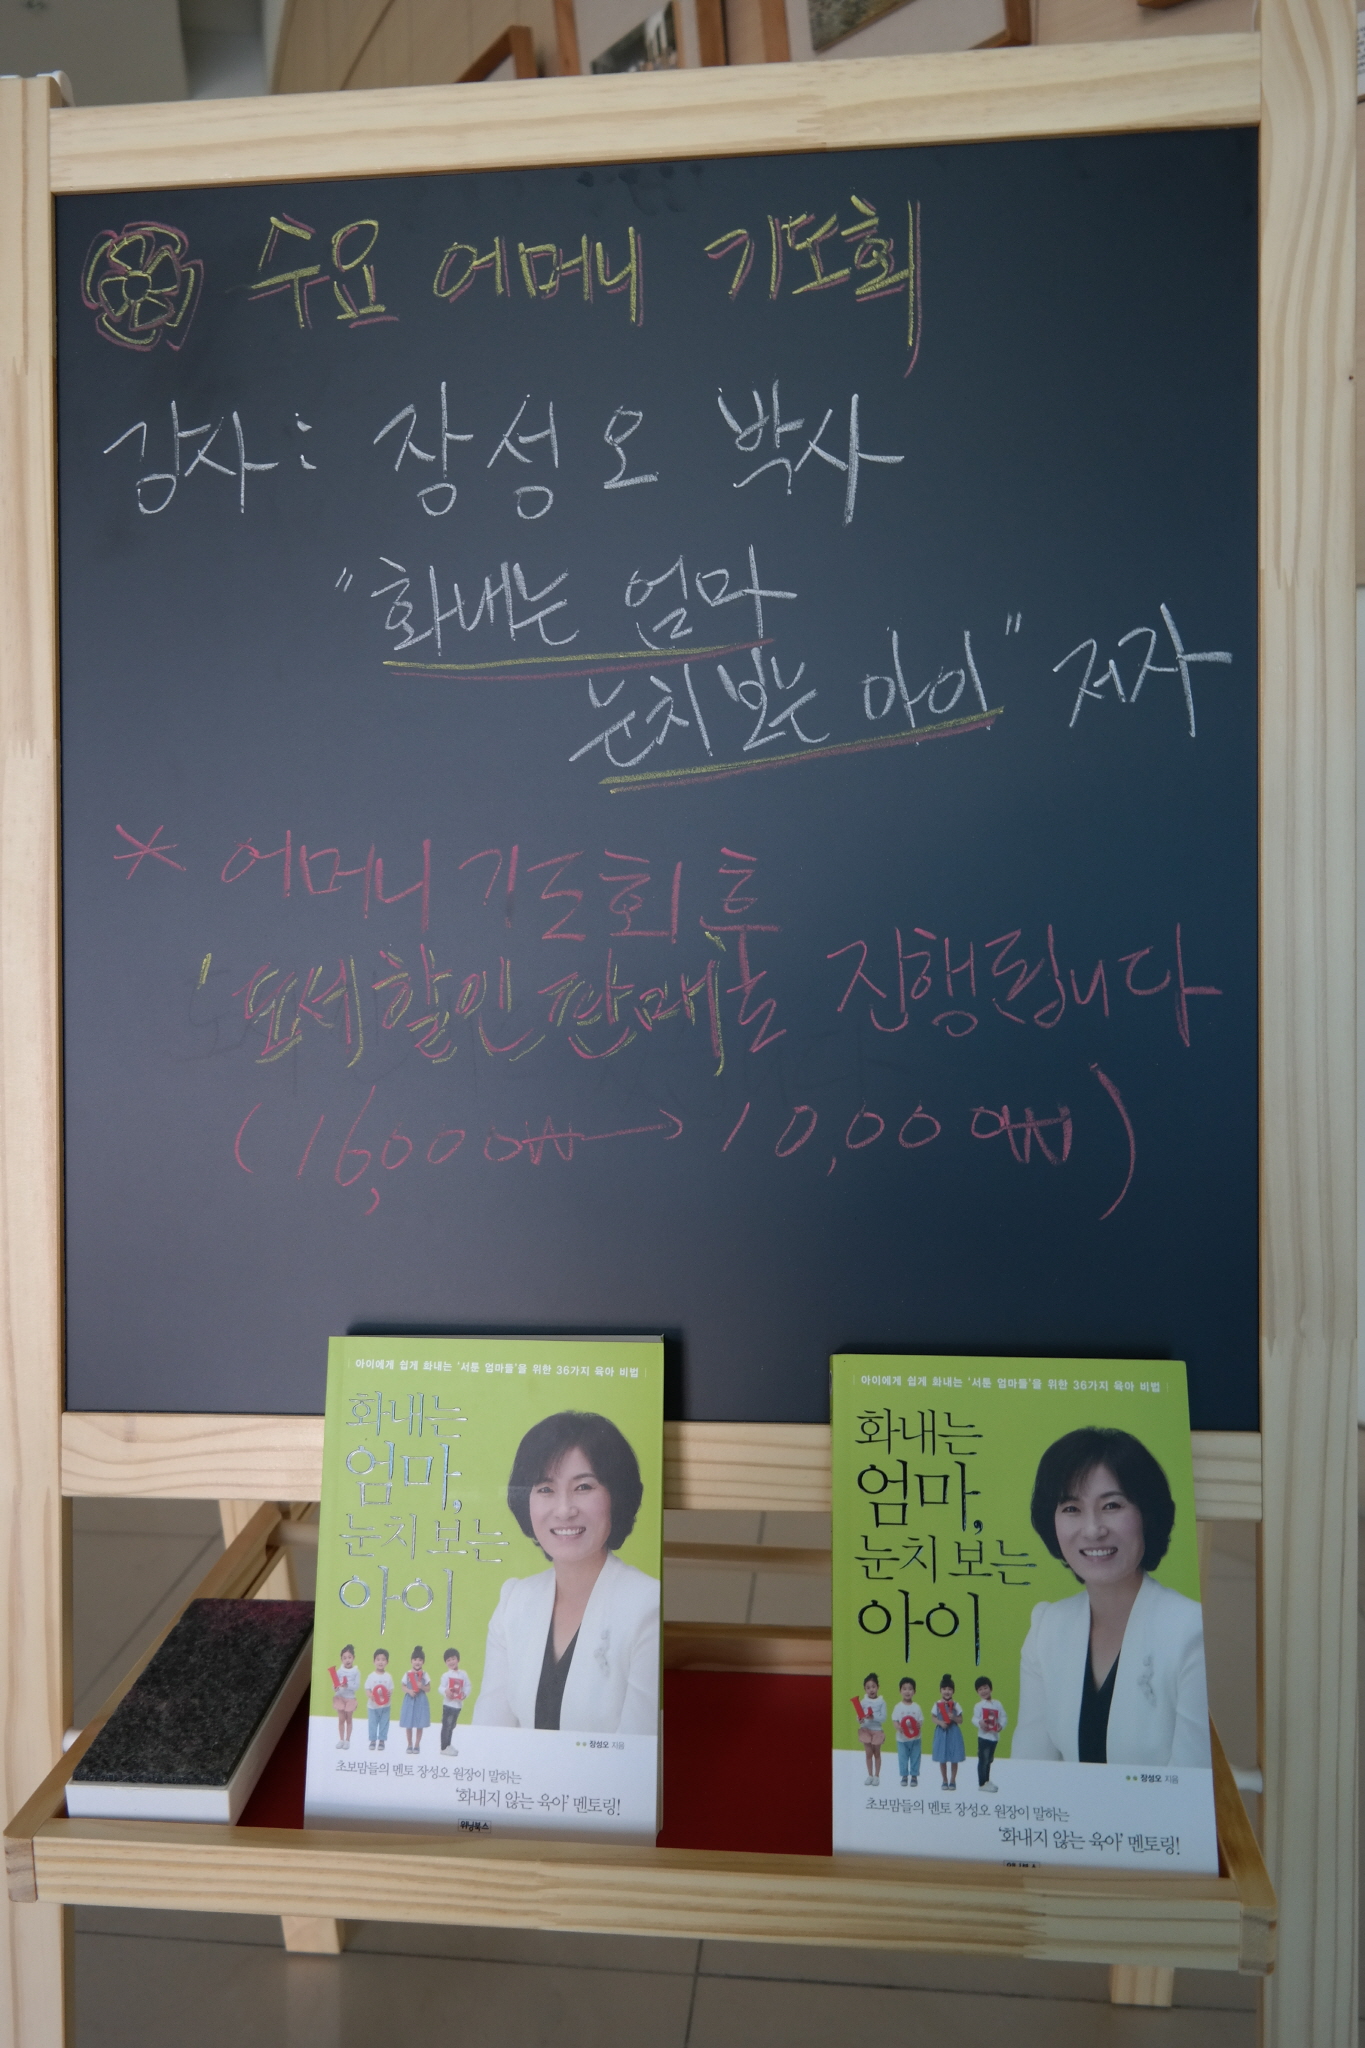 수요 어머니 기도회
강사 : 장성오 박사
"화내는 엄마
눈치보는 아이" 저자
* 어머니 기도회 후
할인판매 진행됩니다
(16,000₩ → 10,000₩)
아이에게 쉽게 화내는 '서툰 엄마들'을 위한 36가지 육아 비법
화내는
엄마,
눈치 보는
아이
LOVE
장성오 지음
초보맘들의 멘토 장성오 원장이 말하는
'화내지 않는 육아' 멘토링!
위닝북스
아이에게 쉽게 화내는 '서툰 엄마들'을 위한 36가지 육아 비법
화내는
엄마,
눈치 보는
아이
LOVE
장성오 지음
초보맘들의 멘토 장성오 원장이 말하는
'화내지 않는 육아' 멘토링!